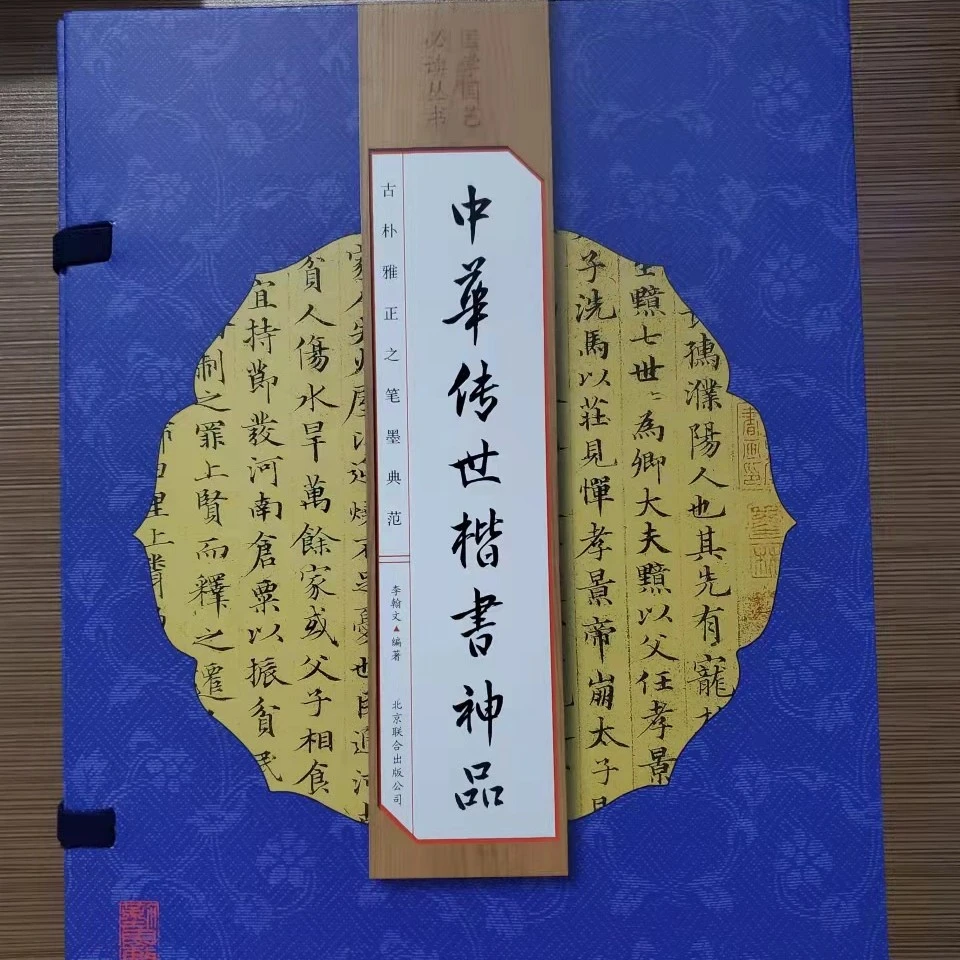 国学国艺
必读丛书
中華传世楷書神品
古朴雅正之笔墨典范
李翰文▲编著
北京联合出版公司
孺濮陽人也其先有寵
黯七世為卿大夫黯以父任孝景
子洗馬以莊見憚孝景帝崩太子
貧人傷水旱萬餘家或父子相食
宜持節發河南倉粟以振貧民
制之罪上賢而釋之遷